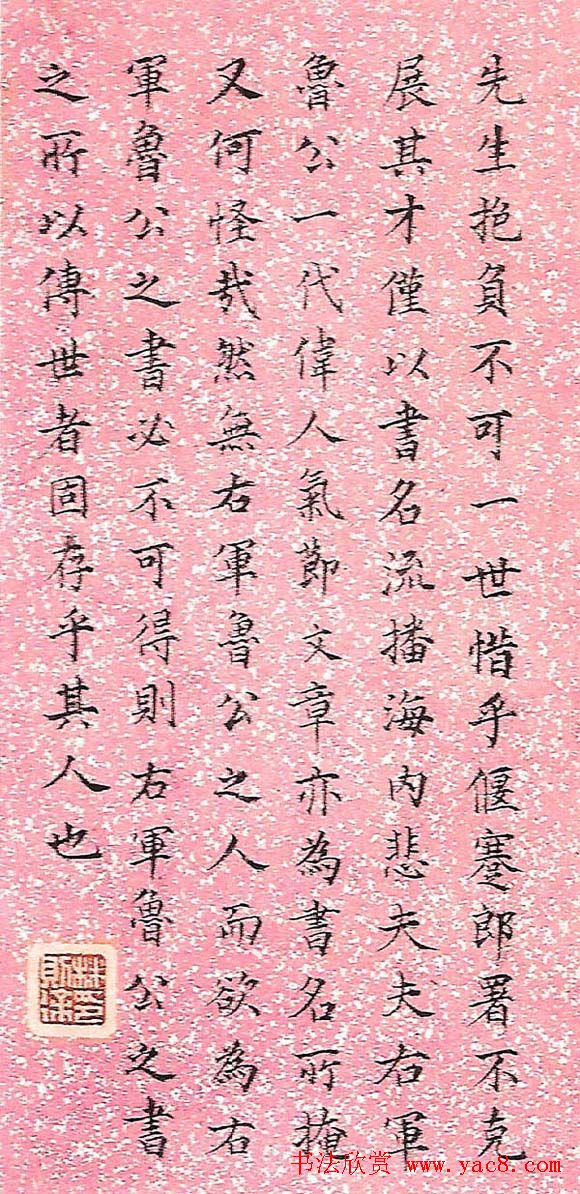 先生抱負不可一世惜乎偃蹇郎署不克
展其才僅以書名流播海內悲夫夫右軍
魯公一代偉人氣節文章亦為書名所掩
又何怪哉然無右軍魯公之人而欲為右
軍魯公之書必不可得則右軍魯公之書
之所以傳世者固存乎其人也
书法欣赏 www.yac8.com